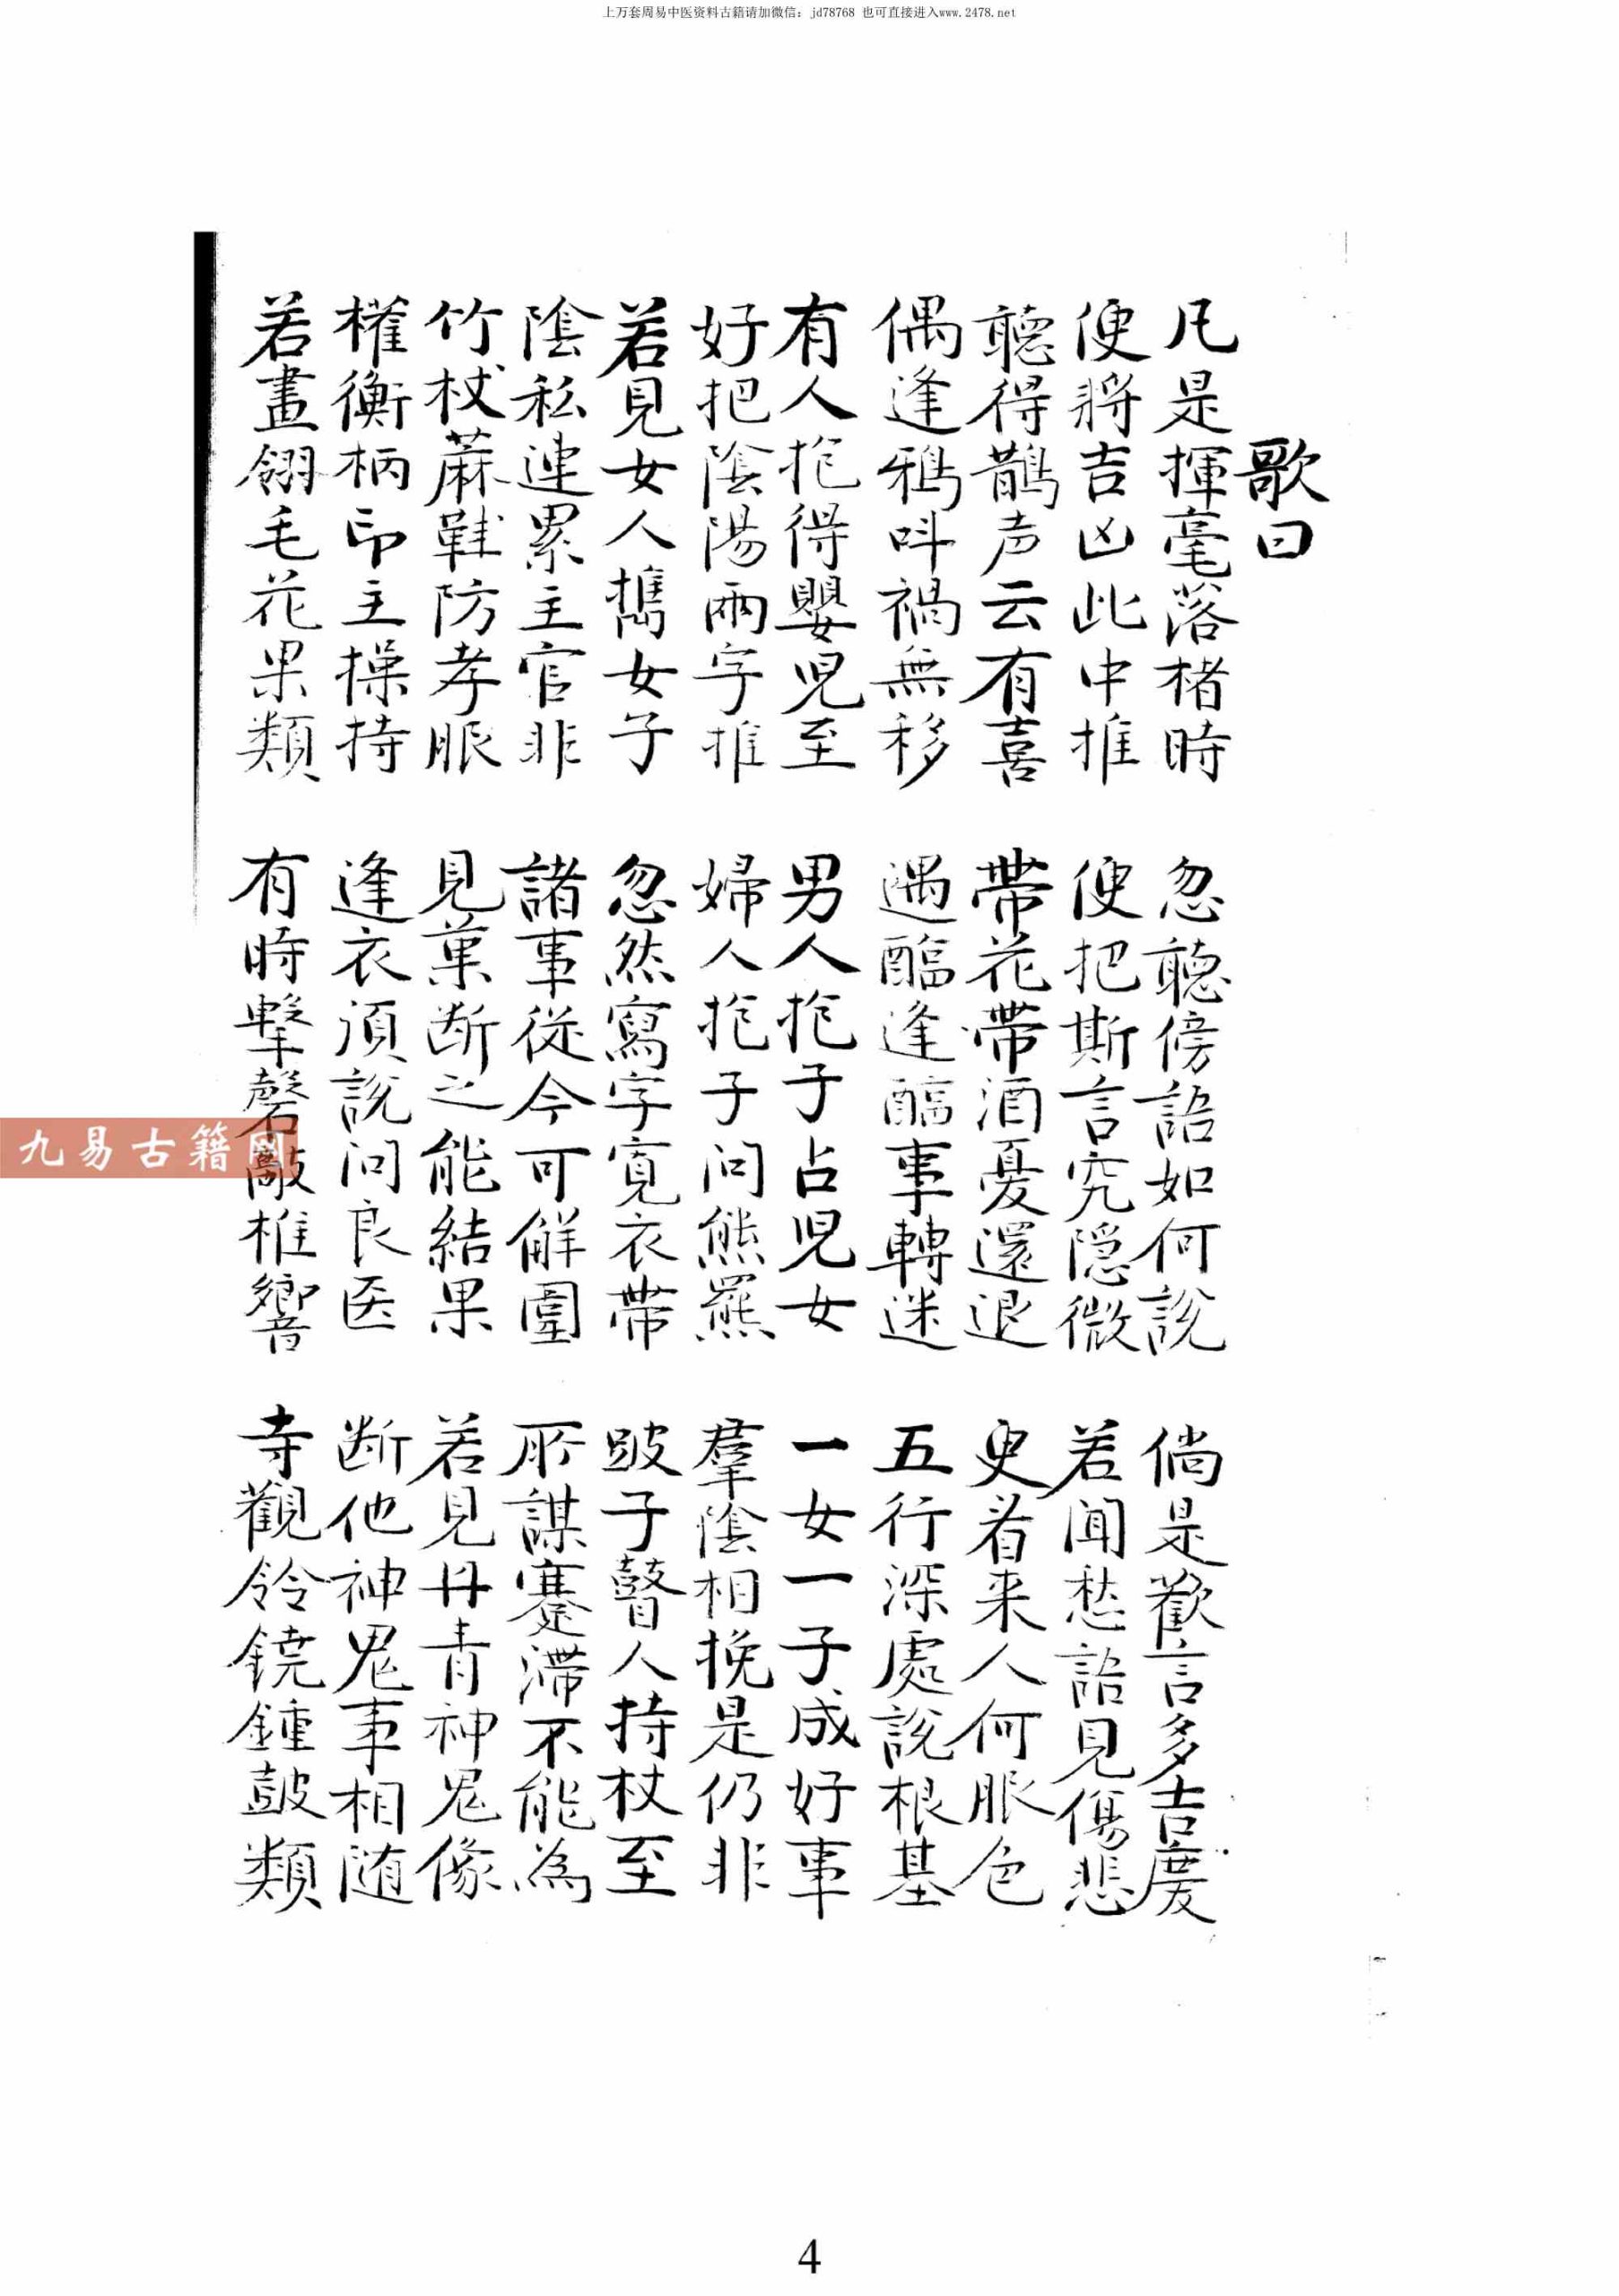 上万套周易中医资料古籍请加微信：jd78768 也可直接进入www.2478.net
歌曰
凡是揮毫落楮時 忽聽傍語如何說 倘是歡言多吉慶
便將吉凶此中推 便把斯言究隠微 若闻愁語見傷悲
聽得鵲声云有喜 帶花帶酒憂還退 史着来人何服色
偶逢鴉呌禍無移 遇醢逢醢事轉迷 五行深處說根基
有人抱得嬰児至 男人抱子占児女 一女一子成好事
好把陰陽兩字推 婦人抱子问熊羆 羣陰相挽是仍非
若見女人擕女子 忽然寫字寬衣帶 跛子瞽人持杖至
陰私連累主官非 諸事從今可解圍 所謀蹇滯不能為
竹杖蔴鞋防孝服 見菓断之能結果 若見丹青神鬼像
權衡柄印主操持 逢衣須說问良医 断他神鬼事相随
若畫翎毛花果類 有時擊磬敲椎響 寺觀鈴鐃鍾皷類
九易古籍网
4